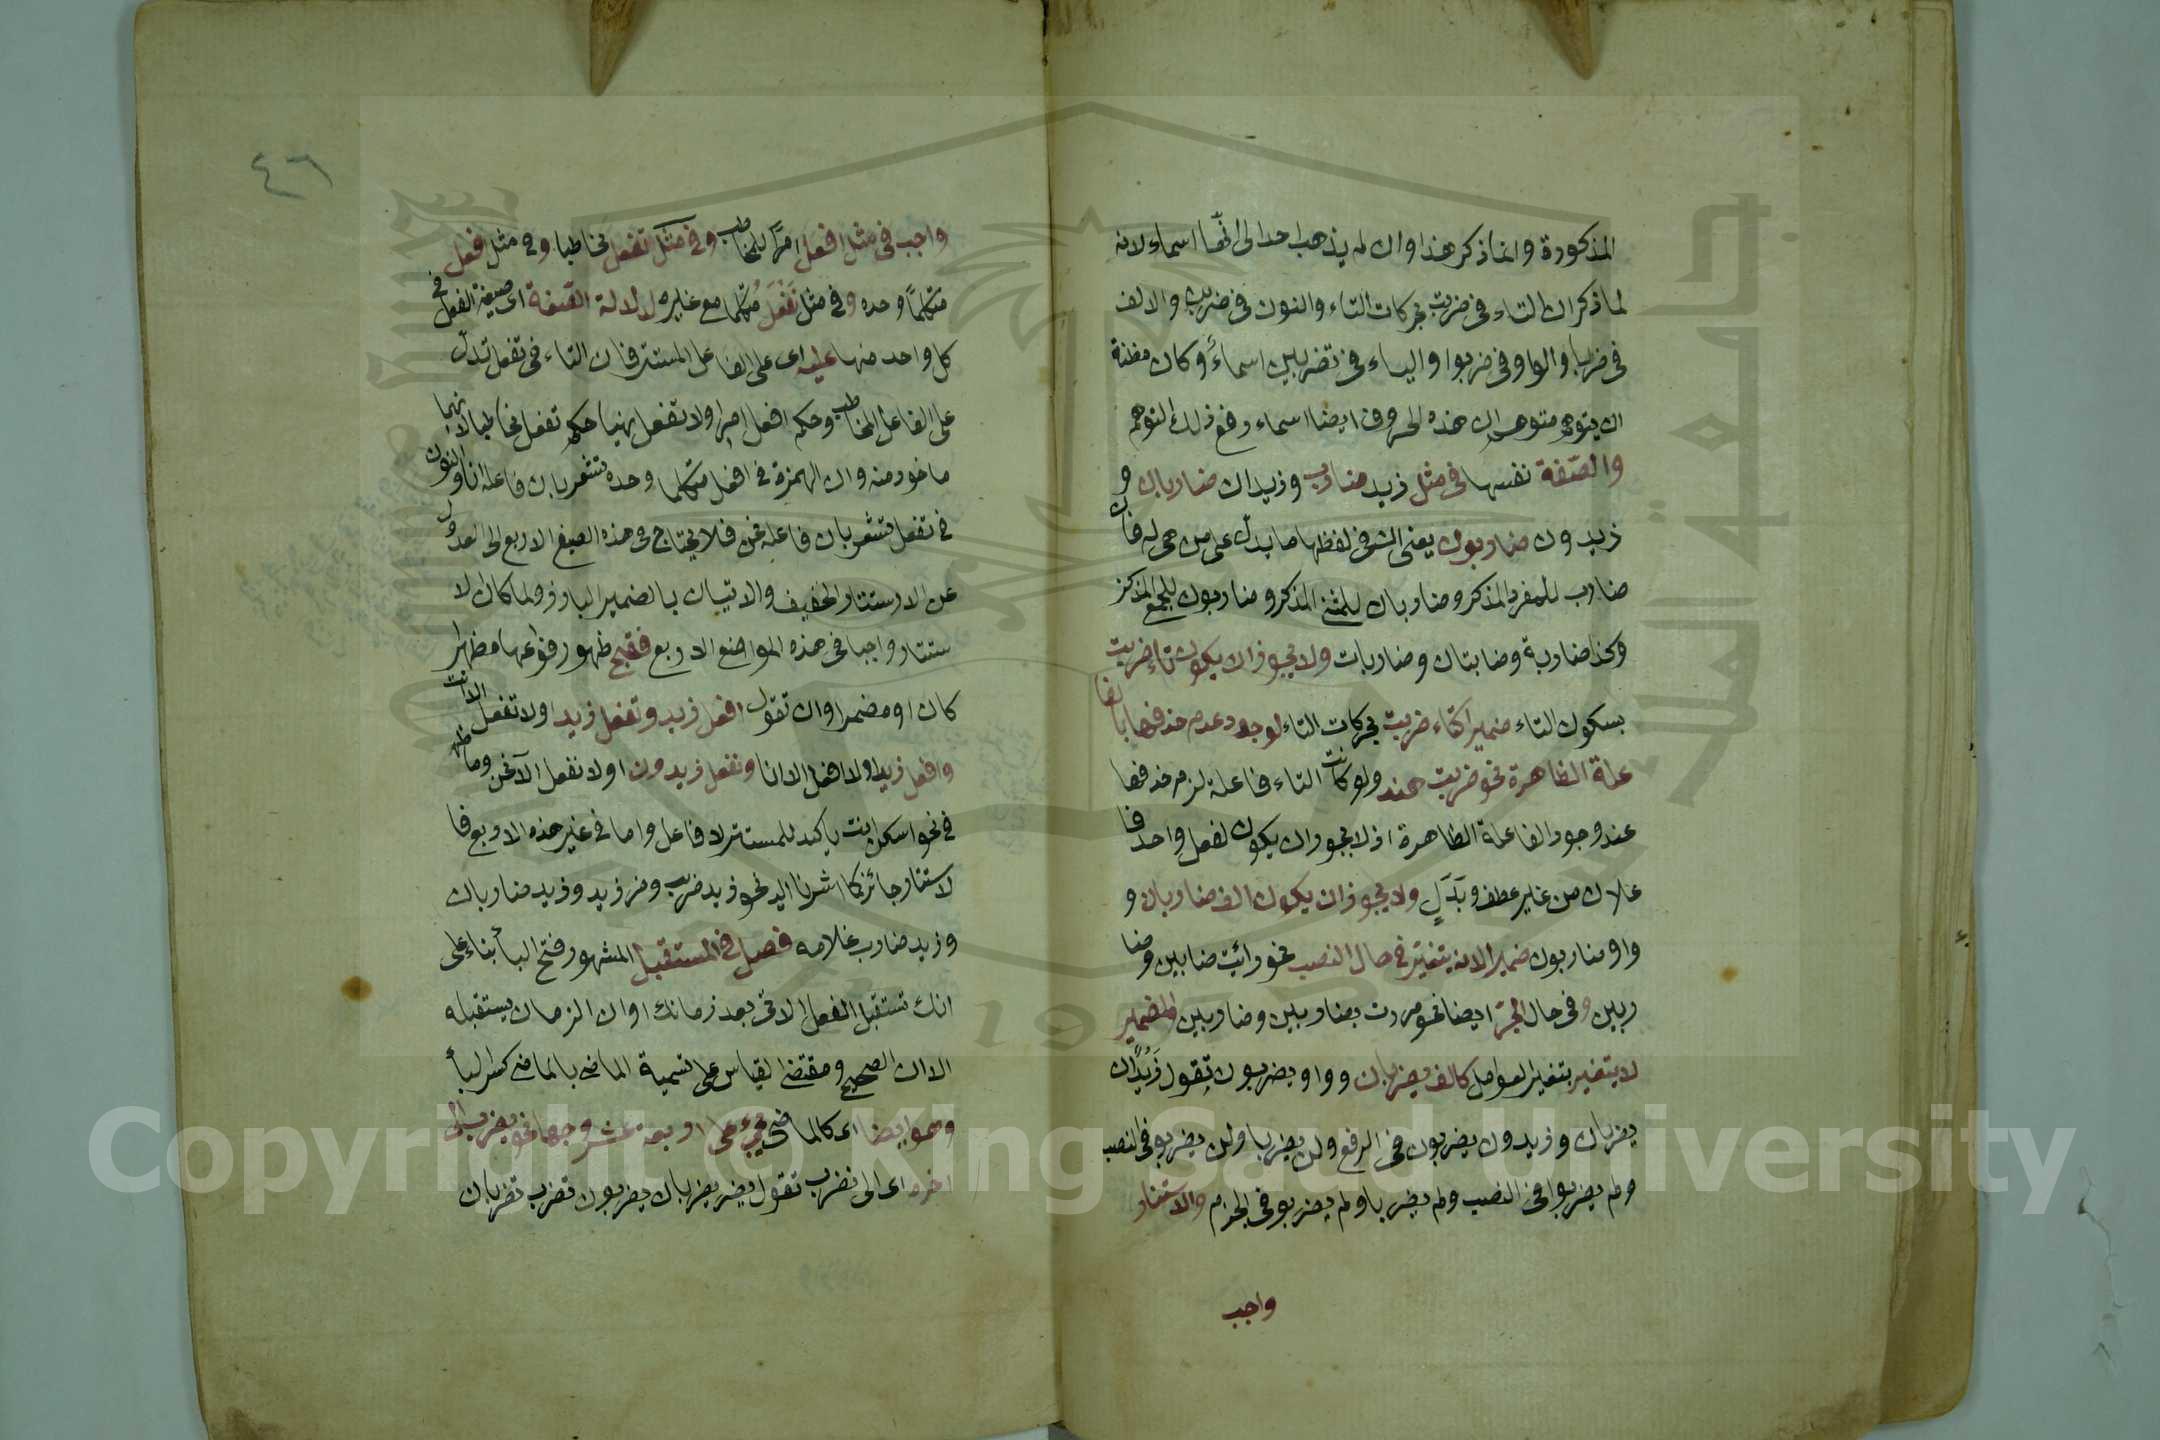 المذكورة وانما ذكر هذا وان لم يذهب احد الى انها اسماء لانه
لما ذكر ان التاء في ضربت بحركات التاء والنون في ضربن والالف
في ضربا والواو في ضربوا والياء في تضربين اسماء وكان مظنة
ان يتوهم متوهم ان هذه الحروف ايضا اسماء دفع ذلك التوهم
والصفة نفسها في مثل زيد ضارب وزيدان ضاربان و
زيدون ضاربون يعنى في لفظها ما يدل على من هى له فان
ضارب للمفرد المذكر وضاربان للمثنى المذكر وضاربون للجمع المذكر
وكذا ضاربة وضابتان وضاربات ولا يجوز ان يكون تاء ضربت
بسكون التاء ضميرا كتاء ضربت بحركات التاء لوجود عدم حذفها بالفا
علة الظاهرة نحو ضربت هند ولو كانت التاء فاعلة لزم حذفها
عند وجود الفاعلة الظاهرة اذ لا يجوز ان يكون لفعل واحد فا
علان من غير عطف وبدل ولا يجوز ان يكون الف ضاربان و
واو ضاربون ضمير الانه يتغير في حال النصب نحو رائيت ضابين وضا
ربين وفي حال الجر ايضا نحو مررت بضاربين وضاربين والضمير
لا يتغير بتغير العوامل كالف يضربان وواو يضربون تقول زيدان
يضربان وزيدون يضربون في الرفع ولن يضربا ولن يضربو في النصب
ولم يضربوا في النصب ولم يضربا ولم يضربو في الجزم والاستتار
واجب
٤٦
واجب في مثل افعل امرا للمخاطب وفي مثل تفعل مخاطبا وفي مثل افعل
متكلما وحده وفي مثل نفعل متكلما مع غيره لدلالة الصيغة اى صيغة الفعل في
كل واحد منها عليه اى على الفاعل المستتر فان التاء في تفعل تدل
على الفاعل المخاطب وحكم افعل امرا ولا تفعل نهيا حكم تفعل مخاطبا لانهما
ماخوذ منه وان الهمزة في افعل متكلما وحده تشعر بان فاعله انا والنون
في نفعل تشعر بان فاعله نحن فلا يحتاج في هذه الصيغ الاربع الى العدول
عن الاستتار الخفيف والاتيان بالضمير البارز ولما كان الا
ستتار واجبا في هذه المواضع الاربع فقبح ظهور فواعلها مظهرا
كان او مضمرا وان تقول افعل زيد وتفعل زيد او لا تفعل الا انت
وافعل زيد او لا افعل الا انا ونفعل زيدون او لا نفعل الا نحن وما ظهر
في نحو اسكن انت تاكيد للمستتر لا فاعل واما في غير هذه الاربع فا
لاستتار جائز كما اشرنا اليه نحو زيد ضرب وضرب زيد وزيد ضاربان
وزيد ضارب غلامه فصل في المستقبل المشهور فتح الباء بناء على
انك تستقبل الفعل الاتى بعد زمانك او ان الزمان يستقبله
الا ان الصحيح ومقتضى القياس على تسمية الماضى بالماضى كسر الباء
وهو ايضا اى كالماضى يجيء على اربعة عشر وجها نحو يضرب الى
اخره اى الى نضرب تقول يضرب يضربان يضربون تضرب تضربان
Copyright © King Saud University
جامعة الملك سعود
1957